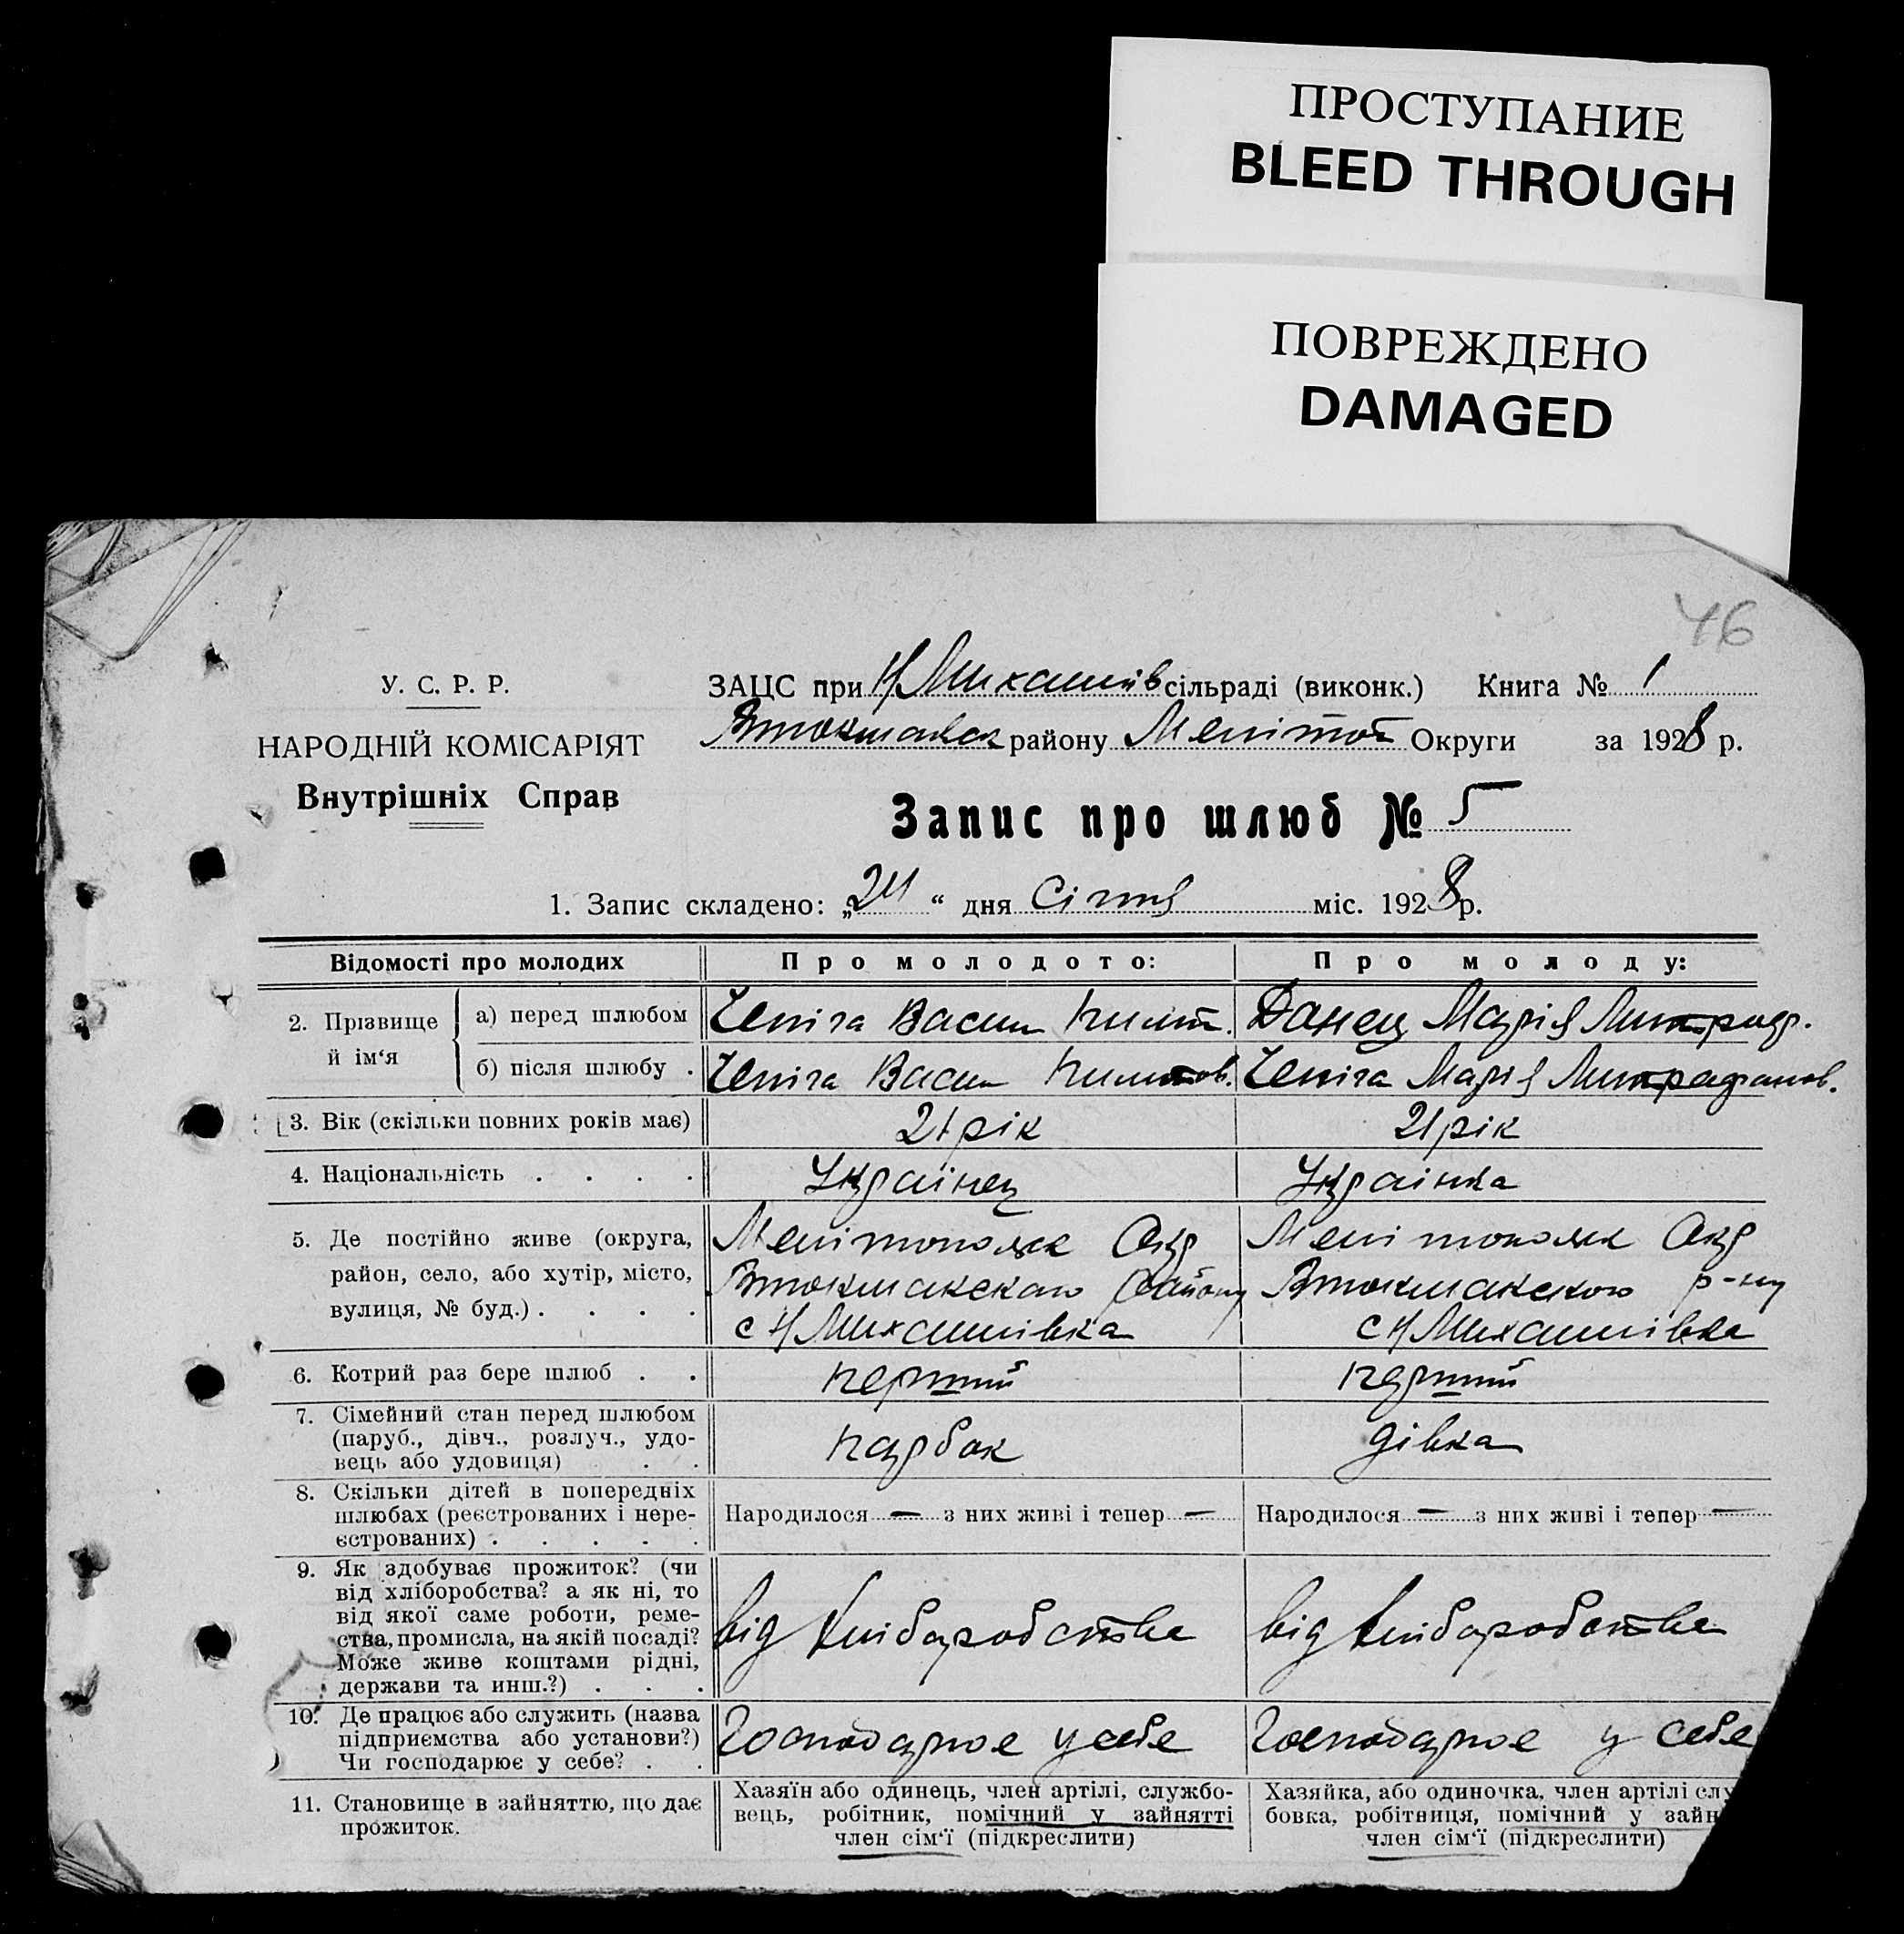 ПРОСТУПАНИЕ
BLEED THROUGH
ПОВРЕЖДЕНО
DAMAGED
46
У. С. Р. Р.
НАРОДНІЙ КОМІСАРІЯТ
Внутрішніх Справ
ЗАЦС при Н Михайлів сільраді (виконк.) Книга № 1
Втокмакск району Мелітоп Округи за 1928 р.
Запис про шлюб № 5
1. Запис складено: „24“ дня Січня міс. 1928 р.
Відомості про молодих Про молодого: Про молоду:
2. Прізвище й ім‘я
а) перед шлюбом Чепіга Васил Пилип. Данец Марія Митроф.
б) після шлюбу . Чепіга Васил Пилипов. Чепіга Марія Митрофанов.
3. Вік (скільки повних років має) 21 рік 21 рік
4. Національність . . . . Українец Українка
5. Де постійно живе (округа, Мелітопольск Окр Мелітопольск Окр
район, село, або хутір, місто, Втокмакского району Втокмакского р-ну
вулиця, № буд.) . . . . с Н Михайлівка с Н Михайлівка
6. Котрий раз бере шлюб . . перший перший
7. Сімейний стан перед шлюбом
(паруб., дівч., розлуч., удо- парубок дівка
вець або удовиця) . .
8. Скільки дітей в попередніх
шлюбах (реєстрованих і нере- Народилося — з них живі і тепер — Народилося — з них живі і тепер —
єстрованих) . . . . .
9. Як здобуває прожиток? (чи
від хліборобства? а як ні, то
від якої саме роботи, реме-
ства, промисла, на якій посаді? від хліборобства від хліборобства
Може живе коштами рідні,
держави та инш.?) . . .
10. Де працює або служить (назва
підприємства або установи?) Господарює у себе Господарює у себе
Чи господарює у себе? . .
11. Становище в зайняттю, що дає
прожиток.
Хазяїн або одинець, член артілі, службо-
вець, робітник, помічний у зайнятті
член сім‘ї (підкреслити)
Хазяйка, або одиночка, член артілі слу
бовка, робітниця, помічний у зайн
член сім‘ї (підкреслити)